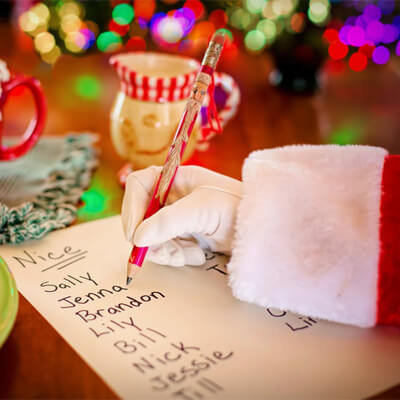 Nice
Sally
Jenna
Brandon
Lily
Bill
Nick
Jessie
Jill